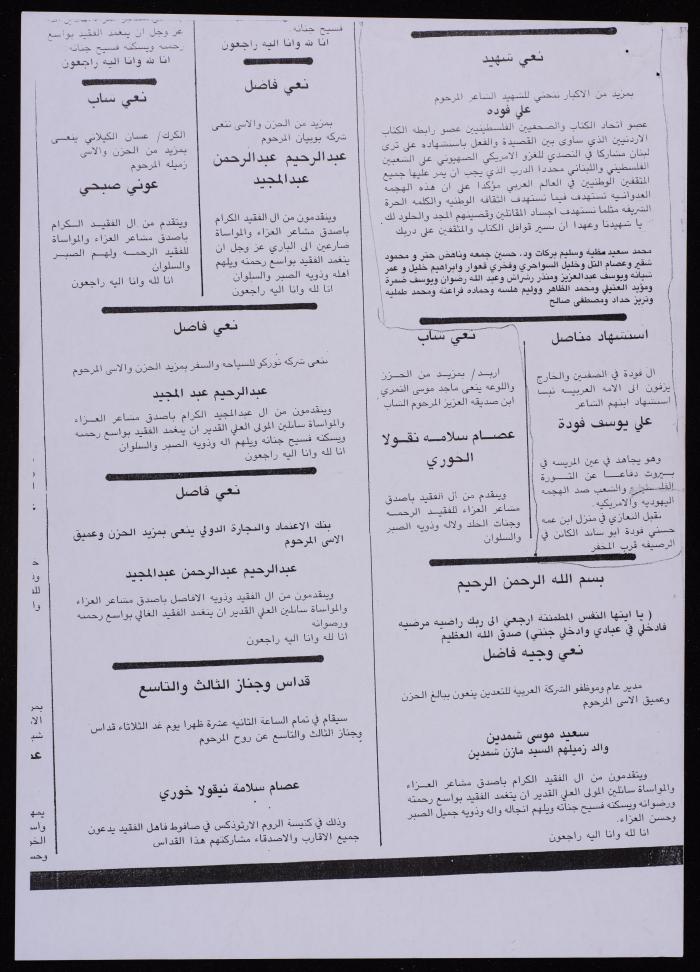 نعي شهيد
بمزيد من الاكبار ننحني للشهيد الشاعر المرحوم
علي فوده
عضو اتحاد الكتاب والصحفيين الفلسطينيين عضو رابطة الكتاب
الاردنيين الذي ساوى بين القصيدة والفعل باستشهاده على ثرى
لبنان مشاركا في التصدي للغزو الامريكي الصهيوني على الشعبين
الفلسطيني واللبناني محددا الدرب الذي يجب ان يمر عليها جميع
المثقفين الوطنيين في العالم العربي مؤكدا على ان هذه الهجمه
العدوانيه تستهدف فيما تستهدف الثقافه الوطنيه والكلمه الحرة
الشريفه مثلما تستهدف اجساد المقاتلين وقضيتهم المجد والخلود لك
يا شهيدنا وعهدا ان نسير قوافل الكتاب والمثقفين على دربك
محمد سعيد مظيه وسليم بركات ود. حسين جمعه وناهض حتر و محمود
شقير وعصام التل وخليل السواحري وفخري قعوار وابراهيم خليل و عمر
شبانه ويوسف عبدالعزيز ومنذر رشراش وعبد الله رضوان ويوسف ضمرة
ومؤيد العتيلي ومحمد الظاهر ووليم هلسه وحماده فراعنه ومحمد طمليه
ونزيز حداد ومصطفى صالح
استشهاد مناضل
ال فودة في الصفين والخارج
يزفون الى الامه العربيه نبا
استشهاد ابنهم الشاعر
علي يوسف فودة
وهو يجاهد في عين المريسه في
بيروت دفاعا عن الثورة
الفلسطينية والشعب ضد الهجمه
اليهوديه والامريكيه.
تقبل التعازي في منزل ابن عمه
حسني فودة ابو سائد الكائن في
الرصيفه قرب المخفر
نعي شاب
اربد/ بمزيد من الحزن
واللوعه ينعي ماجد موسى النمري
ابن صديقه العزيز المرحوم الشاب
عصام سلامه نقولا
الخوري
ويتقدم من ال الفقيد باصدق
مشاعر العزاء للفقيد الرحمه
وجنات الخلد ولاله وذويه الصبر
والسلوان
بسم الله الرحمن الرحيم
( يا ايتها النفس المطمئنة ارجعي الى ربك راضيه مرضيه
فادخلي في عبادي وادخلي جنتي) صدق الله العظيم
نعي وجيه فاضل
مدير عام وموظفو الشركة العربيه للتعدين ينعون ببالغ الحزن
وعميق الاسى المرحوم
سعيد موسى شمدين
والد زميلهم السيد مازن شمدين
ويتقدمون من ال الفقيد الكرام باصدق مشاعر العزاء
والمواساة سائلين المولى العلي القدير ان يتغمد الفقيد بواسع رحمته
ورضوانه ويسكنه فسيح جناته ويلهم انجاله واله وذويه جميل الصبر
وحسن العزاء.
انا لله وانا اليه راجعون
فسيح جناته
انا لله وانا اليه راجعون
نعي فاضل
بمزيد من الحزن والاسى تنعى
شركه بوبيان المرحوم
عبدالرحيم عبدالرحمن
عبدالمجيد
ويتقدمون من ال الفقيد الكرام
باصدق مشاعر العزاء والمواساة
ضارعين الى الباري عز وجل ان
يتغمد الفقيد بواسع رحمته ويلهم
اهله وذويه الصبر والسلوان
انا لله وانا اليه راجعون
عز وجل ان يتغمد الفقيد بواسع
رحمته ويسكنه فسيح جناته
انا لله وانا اليه راجعون
نعي شاب
الكرك/ غسان الكيلاني ينعى
بمزيد من الحزن والاسى
زميله المرحوم
عوني صبحي
ويتقدم من ال الفقيد الكرام
باصدق مشاعر العزاء والمواساة
للفقيد الرحمه ولهم الصبر
والسلوان
انا لله وانا اليه راجعون
نعي فاضل
تنعى شركه توركو للسياحه والسفر بمزيد الحزن والاسى المرحوم
عبدالرحيم عبد المجيد
ويتقدمون من ال عبدالمجيد الكرام باصدق مشاعر العزاء
والمواساة سائلين المولى العلي القدير ان يتغمد الفقيد بواسع رحمته
ويسكنه فسيح جناته ويلهم اله وذويه الصبر والسلوان
انا لله وانا اليه راجعون
نعي فاضل
بنك الاعتماد والتجارة الدولي ينعى بمزيد الحزن وعميق
الاسى المرحوم
عبدالرحيم عبدالرحمن عبدالمجيد
ويتقدمون من ال الفقيد وذويه الافاضل باصدق مشاعر العزاء
والمواساة سائلين العلي القدير ان يتغمد الفقيد الغالي بواسع رحمته
ورضوانه
انا لله وانا اليه راجعون
قداس وجناز الثالث والتاسع
سيقام في تمام الساعة الثانيه عشرة ظهرا يوم غد الثلاثاء قداس
وجناز الثالث والتاسع عن روح المرحوم
عصام سلامة نيقولا خوري
وذلك في كنيسة الروم الارثوذكس في صافوط فاهل الفقيد يدعون
جميع الاقارب والاصدقاء مشاركتهم هذا القداس